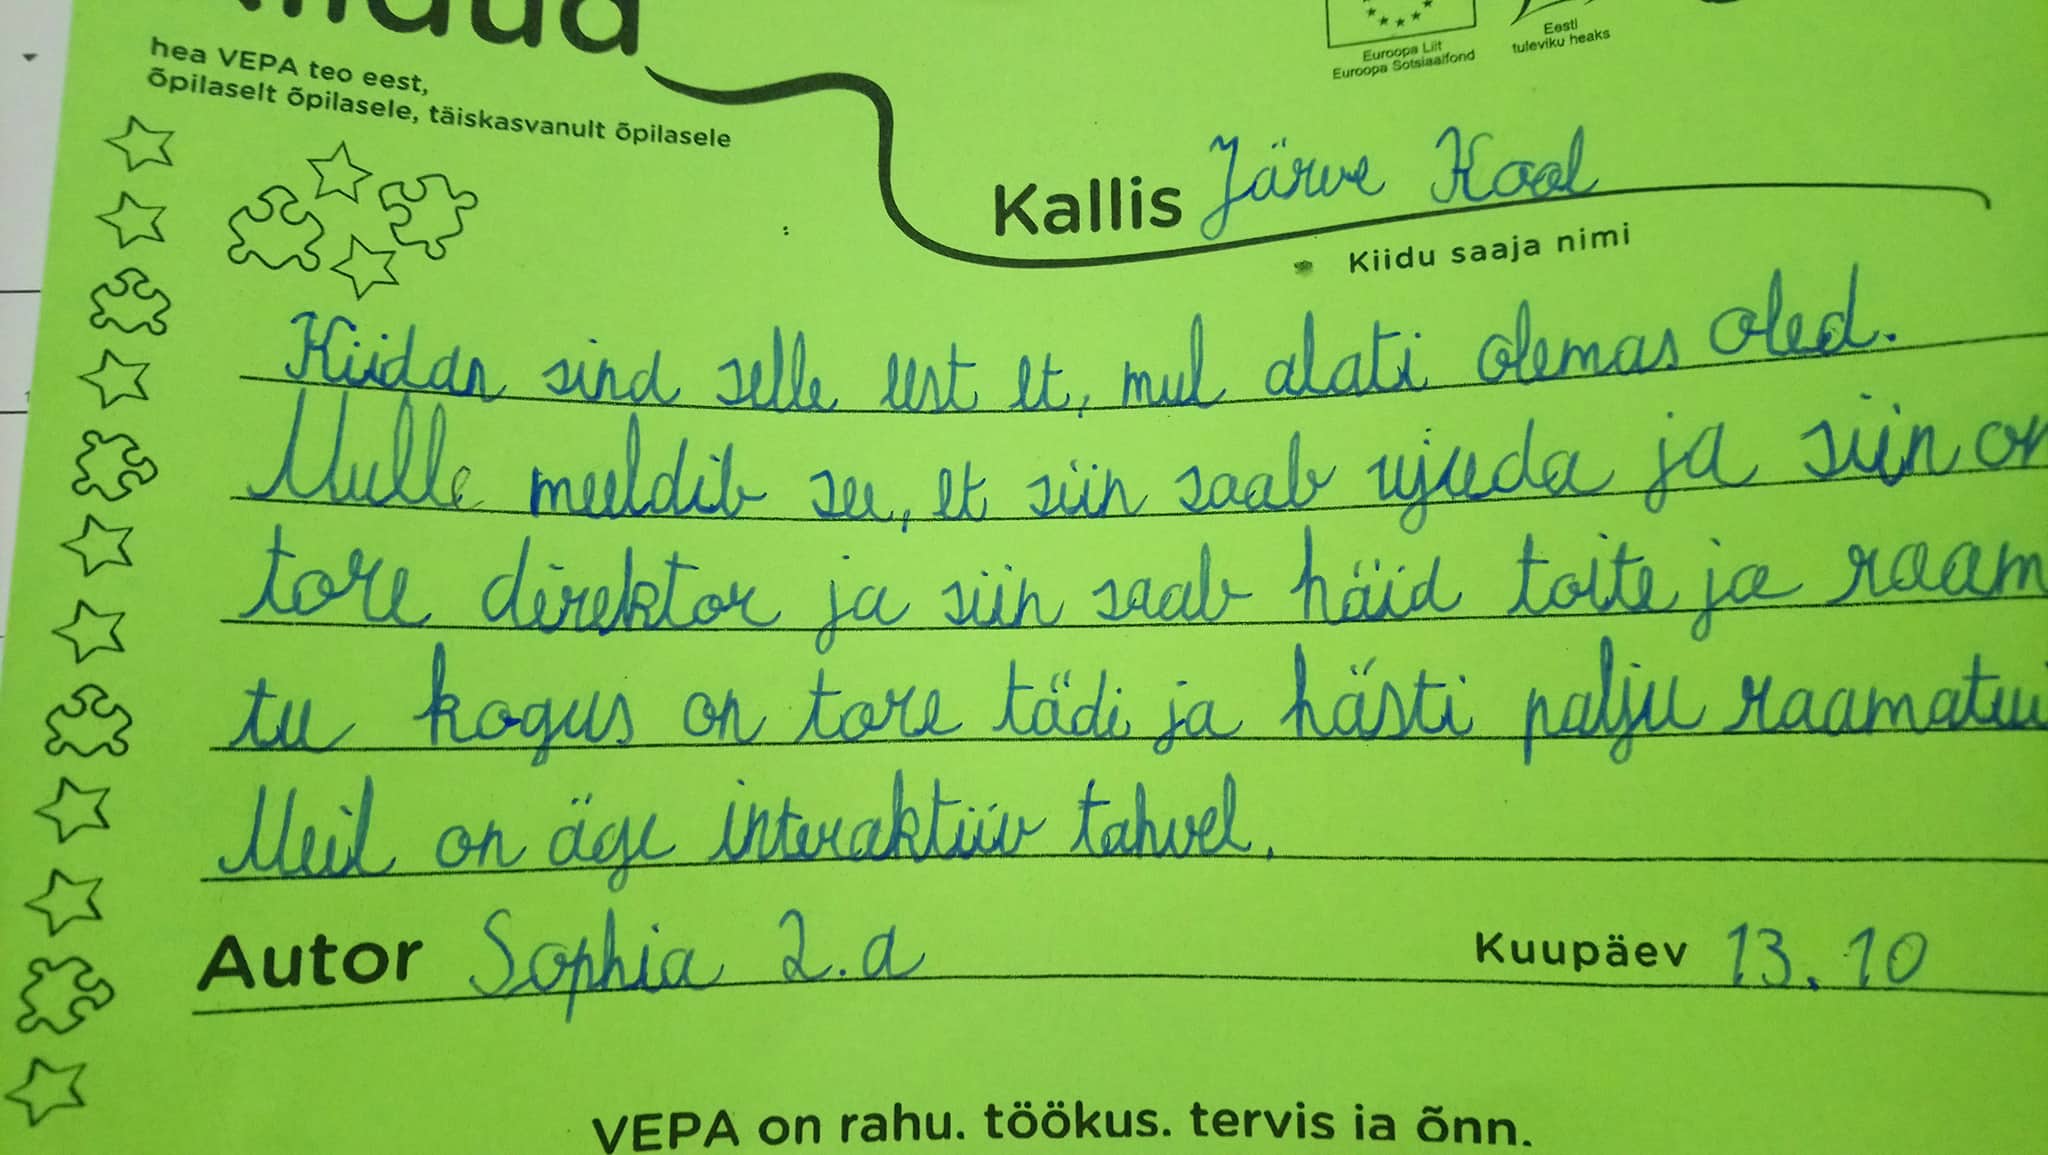 hea VEPA teo eest,
õpilaselt õpilasele, täiskasvanult õpilasele
Euroopa Liit
Euroopa Sotsiaalfond
Eesti
tuleviku heaks
Kallis Järve Kool
Kiidu saaja nimi
Kiidan sind selle eest et, mul alati olemas oled.
Mulle meeldib see, et siin saab ujuda ja siin on
tore direktor ja siin saab häid toite ja raam
tu kogus on tore tädi ja hästi palju raamatui
Meil on äge interaktiiv tahvel.
Autor Sophia 2.a
Kuupäev 13.10
VEPA on rahu, töökus, tervis ja õnn.